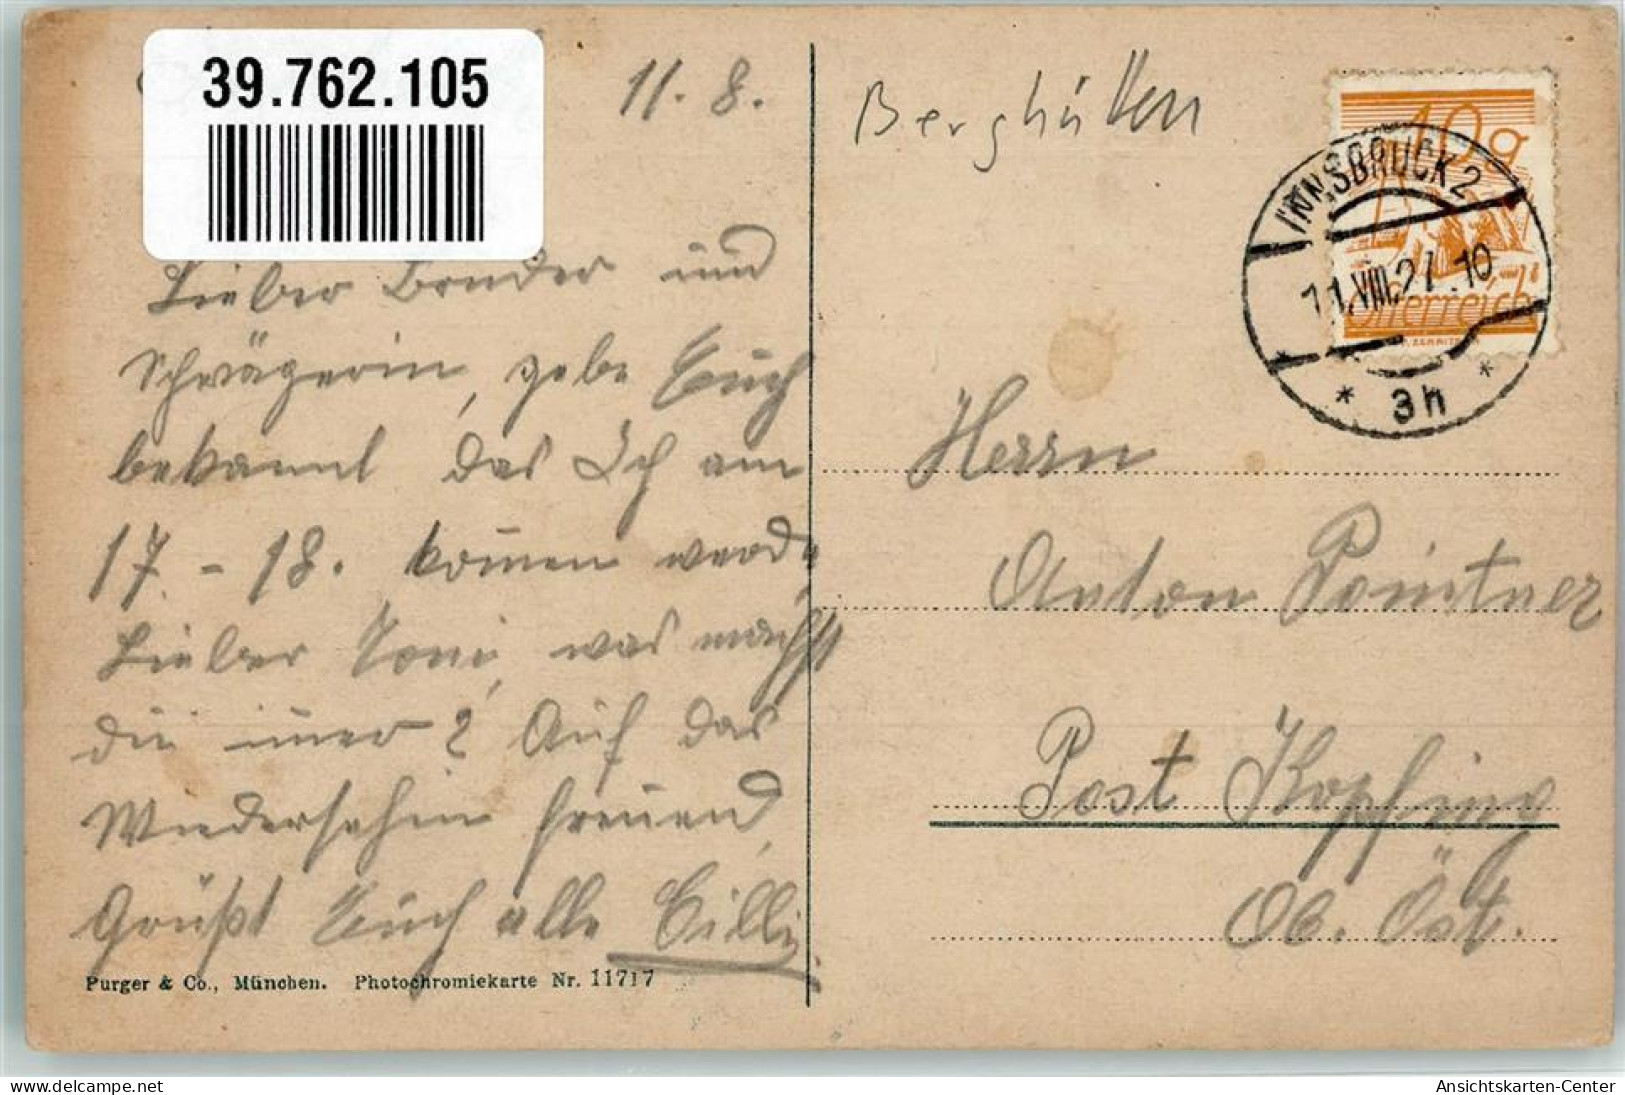 39.762.105
11. 8.
Lieber Bruder und
Schwägerin, gebe Euch
bekannt das Ich am
17. - 18. komen werde
Lieber Toni, was machst
du imer? Auf das
Wiedersehen freuend
Grüßt Euch alle Cilli.
Purger & Co., München. Photochromiekarte Nr. 11717
Berghütten
10g
INNSBRUCK 2
11.VIII.27.10
Österreich
* 3h *
Herrn
Anton Pointner
Post Kopfing
Ob. Öst.
Delcampe.net
Ansichtskarten-Center